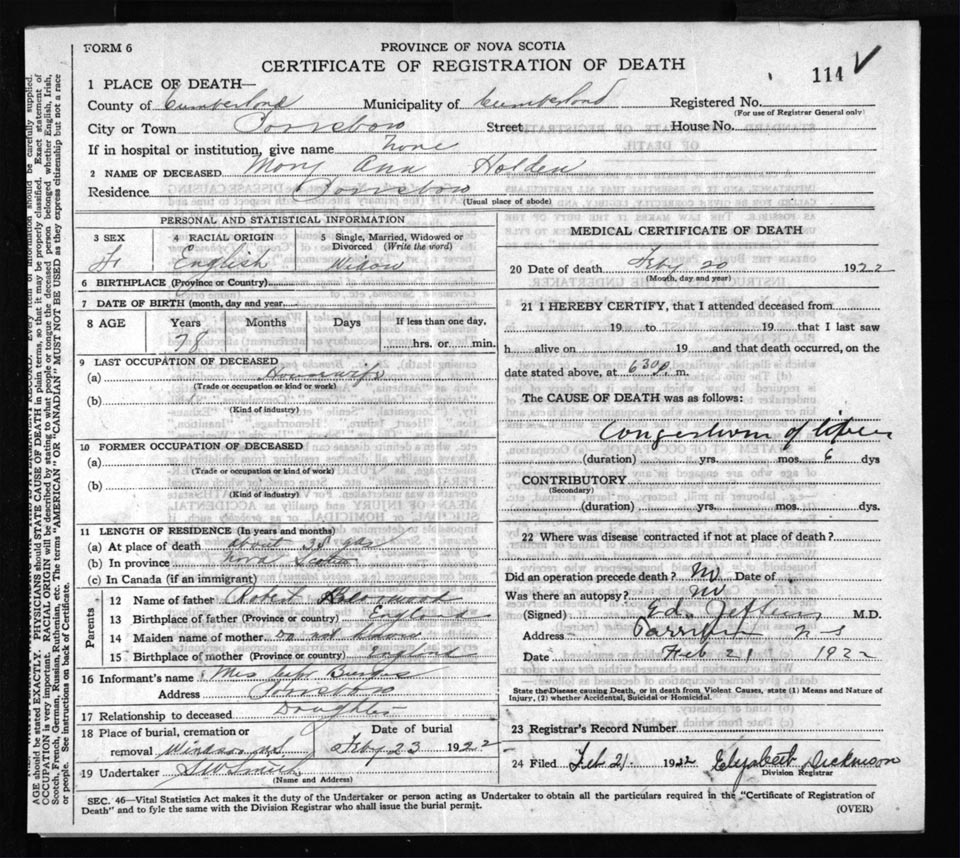 FORM 6
PROVINCE OF NOVA SCOTIA
CERTIFICATE OF REGISTRATION OF DEATH
114
1 PLACE OF DEATH—
County of Cumberland Municipality of Cumberland Registered No.
(For use of Registrar General only)
City or Town Parrsboro Street House No.
If in hospital or institution, give name None
2 NAME OF DECEASED Mary Ann Holden
Residence Parrsboro
(Usual place of abode)
PERSONAL AND STATISTICAL INFORMATION
3 SEX 4 RACIAL ORIGIN 5 Single, Married, Widowed or Divorced (Write the word)
F English Widow
6 BIRTHPLACE (Province or Country)
7 DATE OF BIRTH (month, day and year
8 AGE Years Months Days If less than one day,
78 hrs. or min.
9 LAST OCCUPATION OF DECEASED
(a) Housewife
(Trade or occupation or kind of work)
(b)
(Kind of industry)
10 FORMER OCCUPATION OF DECEASED
(a)
(Trade or occupation or kind of work)
(b)
(Kind of industry)
11 LENGTH OF RESIDENCE (In years and months)
(a) At place of death about
(b) In province Nova Scotia
(c) In Canada (if an immigrant)
Parents
12 Name of father Robert
13 Birthplace of father (Province or country) England
14 Maiden name of mother Do not know
15 Birthplace of mother (Province or country) England
16 Informant's name Mrs
Address Parrsboro
17 Relationship to deceased Daughter
18 Place of burial, cremation or Date of burial
removal Windsor N.S Feby 23 1922
19 Undertaker S W Smith
(Name and Address)
MEDICAL CERTIFICATE OF DEATH
20 Date of death Feby 20 1922
(Month, day and year)
21 I HEREBY CERTIFY, that I attended deceased from
19 to 19 that I last saw
h alive on 19 and that death occurred, on the
date stated above, at 630 p. m.
The CAUSE OF DEATH was as follows:
Congestion of liver
(duration) yrs. mos. 6 dys
CONTRIBUTORY
(Secondary)
(duration) yrs. mos. dys.
22 Where was disease contracted if not at place of death?
Did an operation precede death? No Date of
Was there an autopsy? No
(Signed) Ed. M.D.
Address Parrsboro N-S
Date Feb 21 1922
State the Disease causing Death, or in death from Violent Causes, state (1) Means and Nature of
Injury, (2) whether Accidental, Suicidal or Homicidal.
23 Registrar's Record Number
24 Filed Feb 21- 1922 Elizabeth Dickinson
Division Registrar
SEC. 46—Vital Statistics Act makes it the duty of the Undertaker or person acting as Undertaker to obtain all the particulars required in the "Certificate of Registration of
Death" and to fyle the same with the Division Registrar who shall issue the burial permit.
(OVER)
AGE should be stated EXACTLY. PHYSICIANS should STATE CAUSE OF DEATH in plain terms, so that it may be properly classified. Exact statement of
OCCUPATION is very important. RACIAL ORIGIN will be described by stating to what people or tongue the deceased person belonged whether English, Irish,
Scotch, French, German, Russian, Ruthenian, etc. The terms "AMERICAN" OR "CANADIAN" MUST NOT BE USED as they express citizenship but not a race
or people. See instructions on back of Certificate.